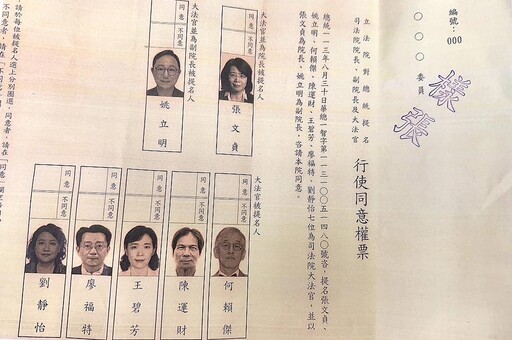 編號：000
○○○委員
樣張
立法院對總統提名
司法院院長、副院長及大法官
行使同意權票
總統一一三年八月三十日華總一智字第一一三一〇〇五一四八〇號咨，提名張文貞、
姚立明、何賴傑、陳運財、王碧芳、廖福特、劉靜怡七位為司法院大法官，並以
張文貞為院長、姚立明為副院長，咨請本院同意。
大法官並為院長被提名人
同意
不同意
張文貞
大法官並為副院長被提名人
同意
不同意
姚立明
大法官被提名人
同意
不同意
何賴傑
同意
不同意
陳運財
同意
不同意
王碧芳
同意
不同意
廖福特
同意
不同意
劉靜怡
請於每位被提名人選上分別圈選，同意者，請在「同意